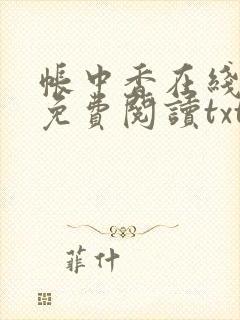 帳中香在綫
免費閱讀txt
菲什